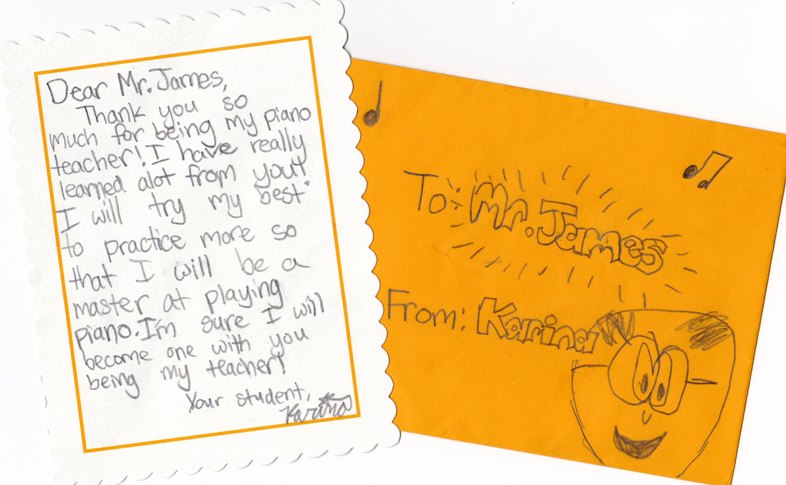 Dear Mr. James,
Thank you so
much for being my piano
teacher! I have really
learned alot from you!!
I will try my best
to practice more so
that I will be a
master at playing
piano. I'm sure I will
become one with you
being my teacher!
Your student,
Karina
To: Mr. James
From: Karina